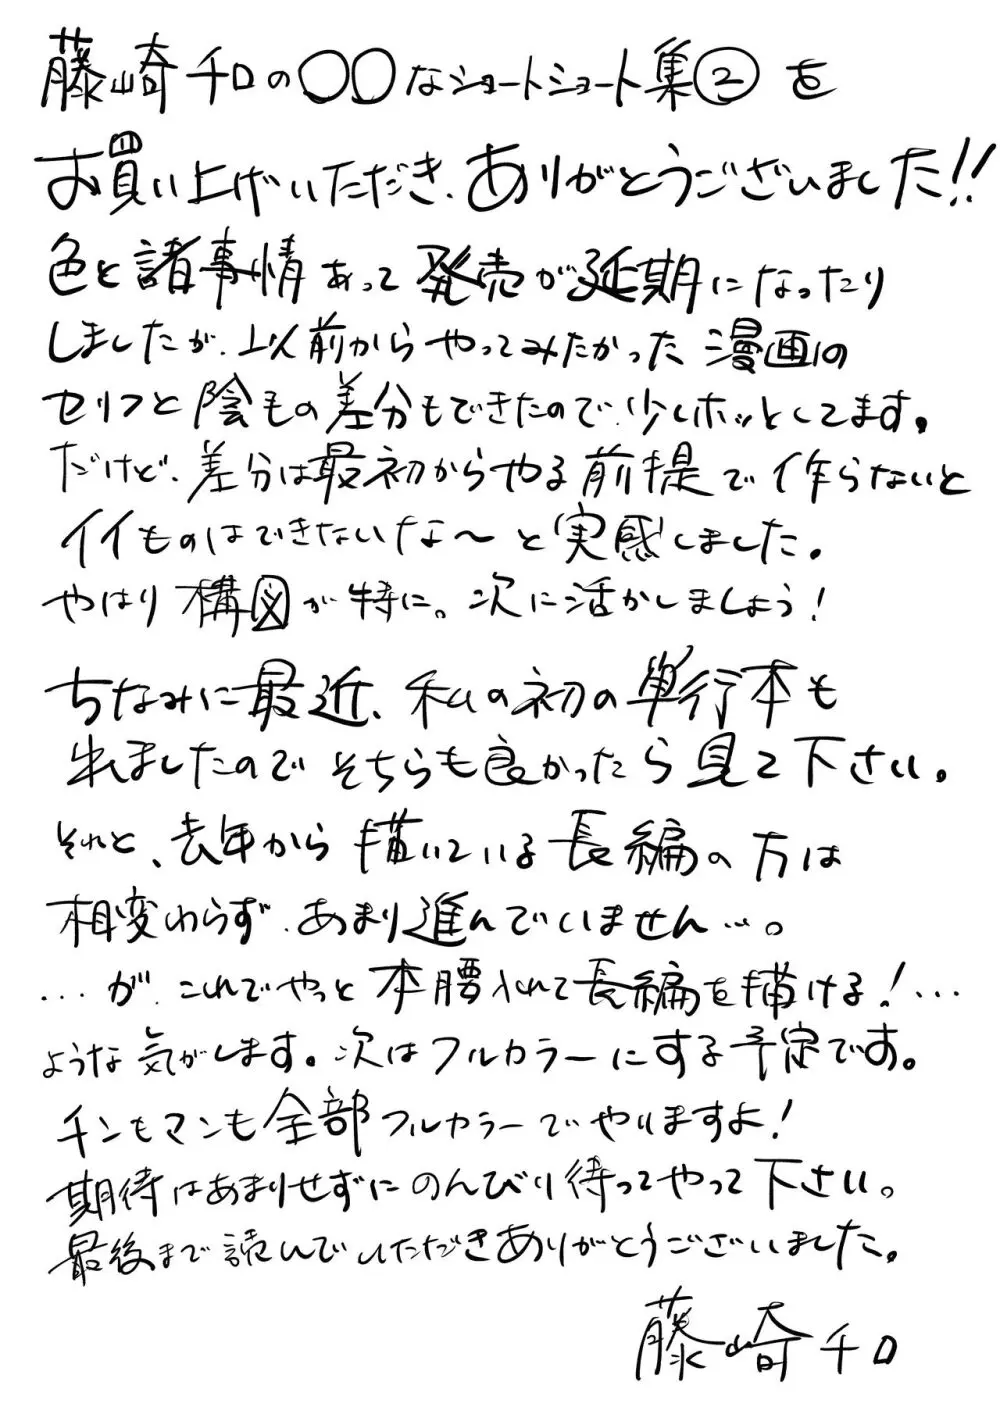 藤崎千ロの○○なショートショート集②を
お買い上げいただき、ありがとうございました!!
色と諸事情あって発売が延期になったり
しましたが、以前からやってみたかった漫画の
セリフと陰毛の差分もできたので、少しホッとしてます。
だけど、差分は最初からやる前提で作らないと
イイものはできないな～と実感しました。
やはり構図が特に。次に活かしましょう!
ちなみに最近、私の初の単行本も
出ましたのでそちらも良かったら見て下さい。
それと、去年から描いている長編の方は
相変わらず、あまり進んでいません…。
…が、これでやっと本腰入れて長編を描ける!…
ような気がします。次はフルカラーにする予定です。
チンもマンも全部フルカラーでやりますよ!
期待はあまりせずにのんびり待ってやって下さい。
最後まで読んでいただきありがとうございました。
藤崎千ロ